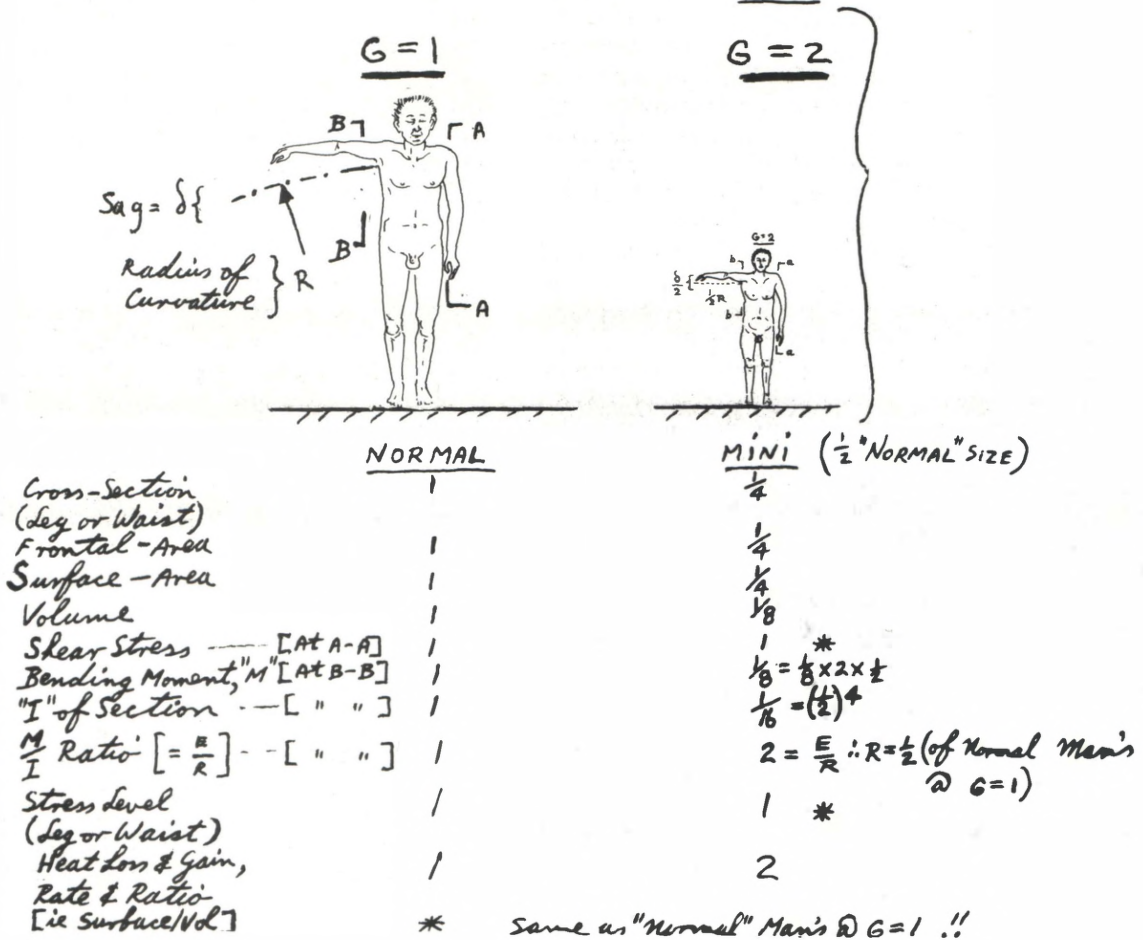 G = 1
G = 2
B
A
Sag = δ{
B
Radius of
Curvature } R
A
G=2
b
a
δ/2 {
½R
b
a
NORMAL
MINI (½ "NORMAL" SIZE)
Cross-Section 1 ¼
(Leg or Waist)
Frontal-Area 1 ¼
Surface-Area 1 ¼
Volume 1 ⅛
Shear Stress —— [At A-A] 1 1 *
Bending Moment, "M" [At B-B] 1 ⅛ = ⅛ x 2 x ½
"I" of Section - — [ " " ] 1 1/16 = (½)⁴
M/I Ratio [= E/R] - - [ " " ] 1 2 = E/R ∴ R = ½ (of Normal Man's
@ G=1)
Stress Level 1 1 *
(Leg or Waist)
Heat Loss & Gain, 1 2
Rate & Ratio
[ie Surface/Vol]
* Same as "Normal" Man's @ G=1 !!